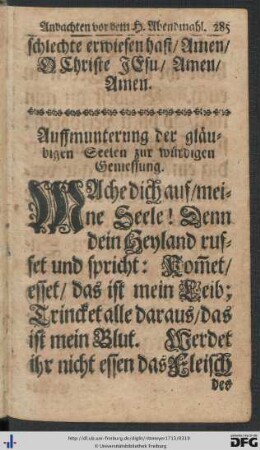 Andachten vor dem H. Abendmahl. 285
schlechte erwiesen hast/ Amen/
O Christe JEsu/ Amen/
Amen.
Auffmunterung der gläu-
bigen Seelen zur würdigen
Geniessung.
MAche dich auf/ mei-
ne Seele! Denn
dein Heyland ruf-
fet und spricht: Kom̃et/
esset/ das ist mein Leib;
Trincket alle daraus/ das
ist mein Blut. Werdet
ihr nicht essen das Fleisch
des
© Universitätsbibliothek Freiburg
Gefördert durch die
DFG